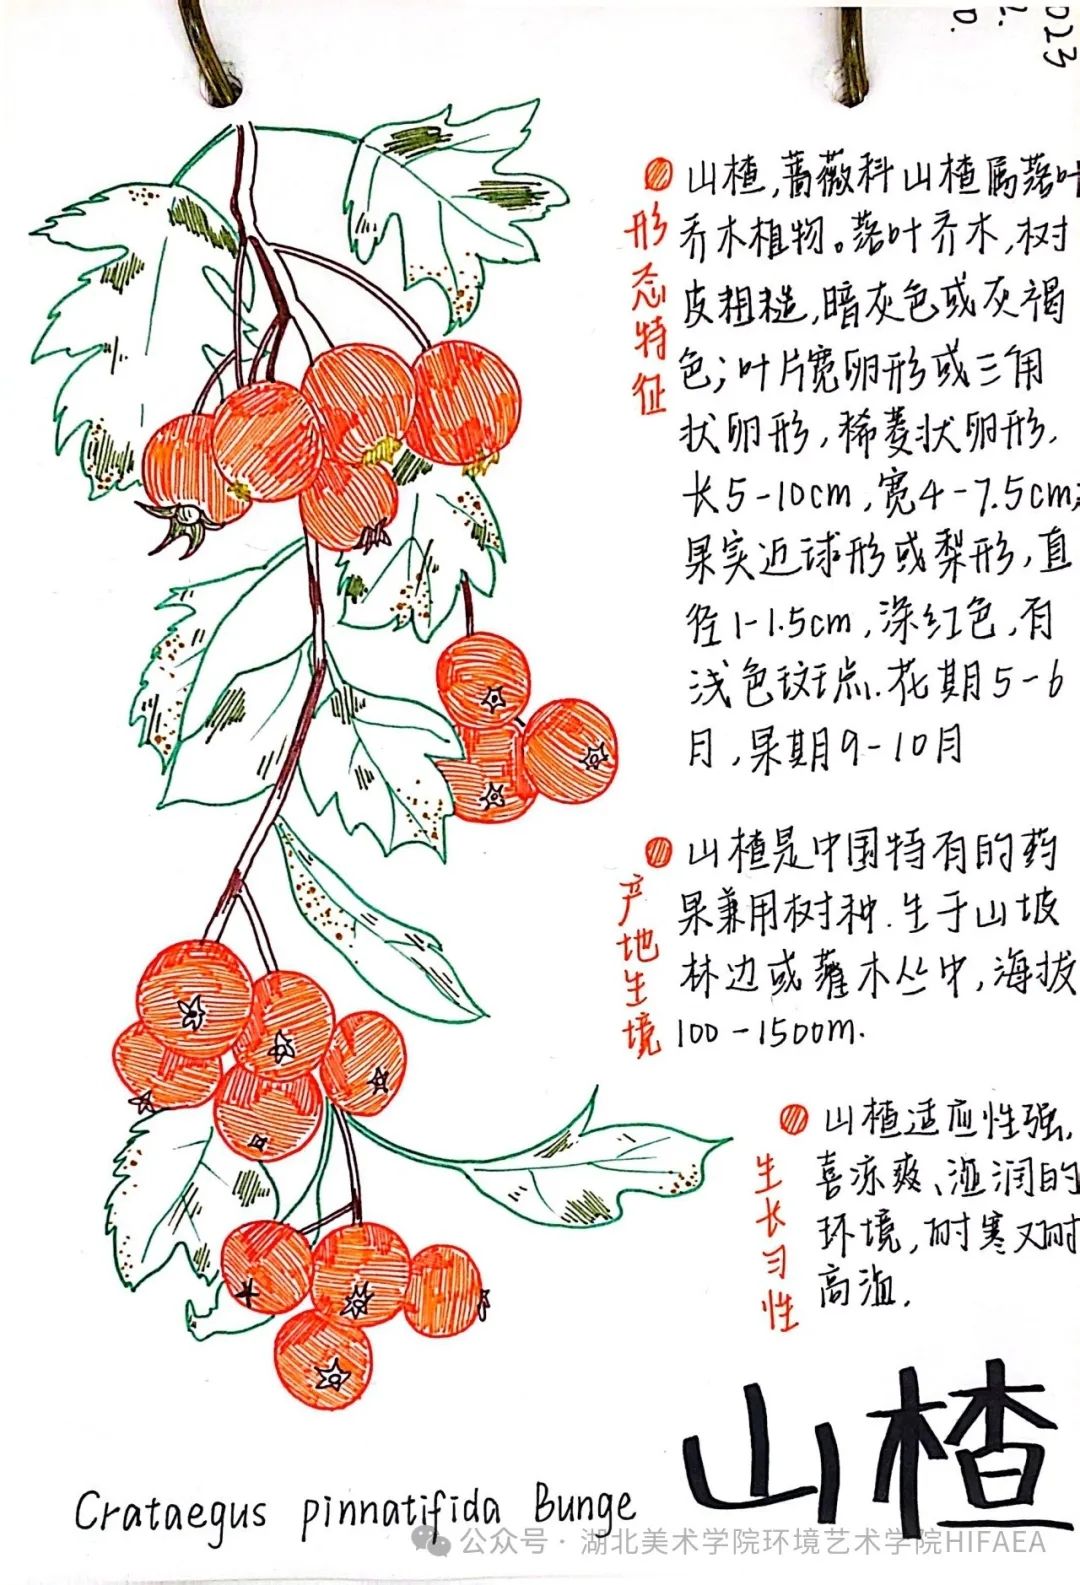 023
2.
0.
形态特征
山楂,蔷薇科山楂属落叶
乔木植物。落叶乔木,树
皮粗糙,暗灰色或灰褐
色;叶片宽卵形或三角
状卵形,稀菱状卵形,
长5-10cm,宽4-7.5cm;
果实近球形或梨形,直
径1-1.5cm,深红色,有
浅色斑点.花期5-6
月,果期9-10月
产地生境
山楂是中国特有的药
果兼用树种.生于山坡
林边或灌木丛中,海拔
100-1500m.
生长习性
山楂适应性强,
喜凉爽、湿润的
环境,耐寒又耐
高温.
山楂
Crataegus pinnatifida Bunge
公众号·湖北美术学院环境艺术学院HIFAEA